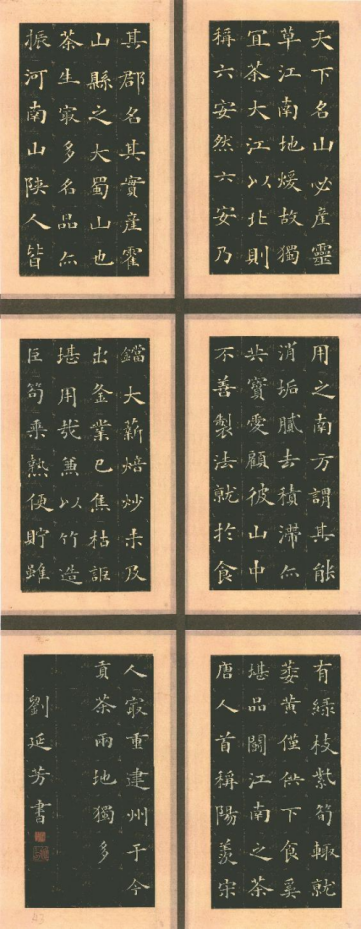 天下名山必產靈
草江南地煖故獨
宜茶大江以北則
稱六安然六安乃
其郡名其實產霍
山縣之大蜀山也
茶生冣多名品亦
振河南山陝人皆
用之南方謂其能
消垢膩去積滯亦
共寶愛顧彼山中
不善製法就於食
鐺大薪焙炒未及
出釜業已焦枯詎
堪用哉兼以竹造
巨笱乘熱便貯雖
有綠枝紫筍輒就
萎黃僅供下食奚
堪品鬬江南之茶
唐人首稱陽羨宋
人冣重建州于今
貢茶兩地獨多
劉延芳書